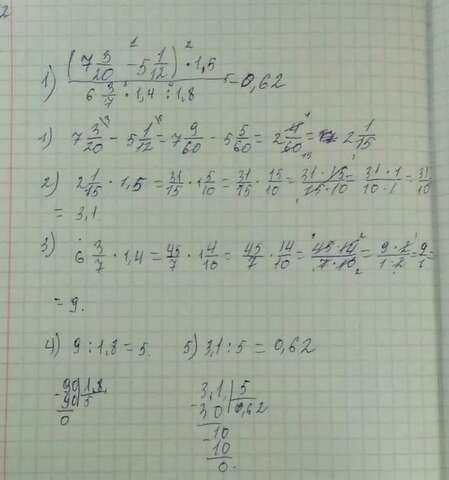 2
1) ((7 3/20 - 5 1/12) · 1,5) / (6 3/7 · 1,4 : 1,8) = 0,62
1) 7 3/20 - 5 1/12 = 7 9/60 - 5 5/60 = 2 4/60 = 2 1/15
2) 2 1/15 · 1,5 = 31/15 · 1 5/10 = 31/15 · 15/10 = 31 · 15/15 · 10 = 31 · 1/10 · 1 = 31/10
= 3,1.
3) 6 3/7 · 1,4 = 45/7 · 1 4/10 = 45/7 · 14/10 = 45 · 14/7 · 10 = 9 · 2/1 · 2 = 9/1 =
= 9.
4) 9 : 1,8 = 5. 5) 3,1 : 5 = 0,62
90 | 1,8 3,1 | 5
- 90 5 - 30 0,62
0 - 10
10
0.